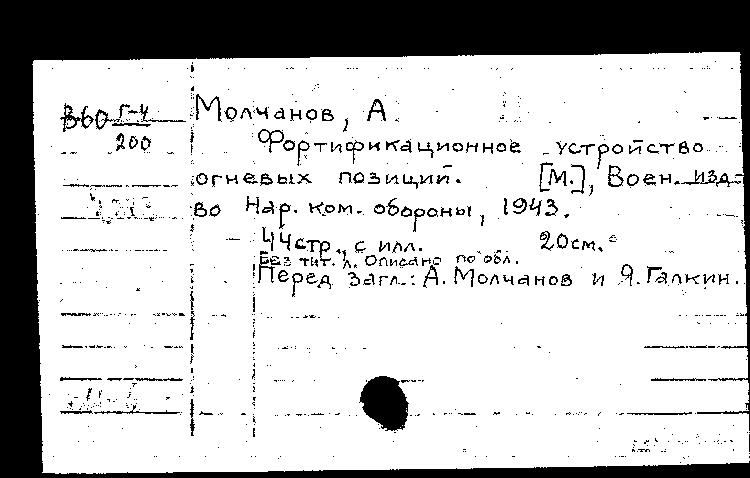 В60 Г-4
200
Молчанов, А.
Фортификационное устройство
огневых позиций. [М.], Воен. изд-
во Нар. ком. обороны, 1943.
44стр., с илл. 20см.
Без тит. л. Описано по обл.
Перед загл.: А. Молчанов и Я. Галкин.